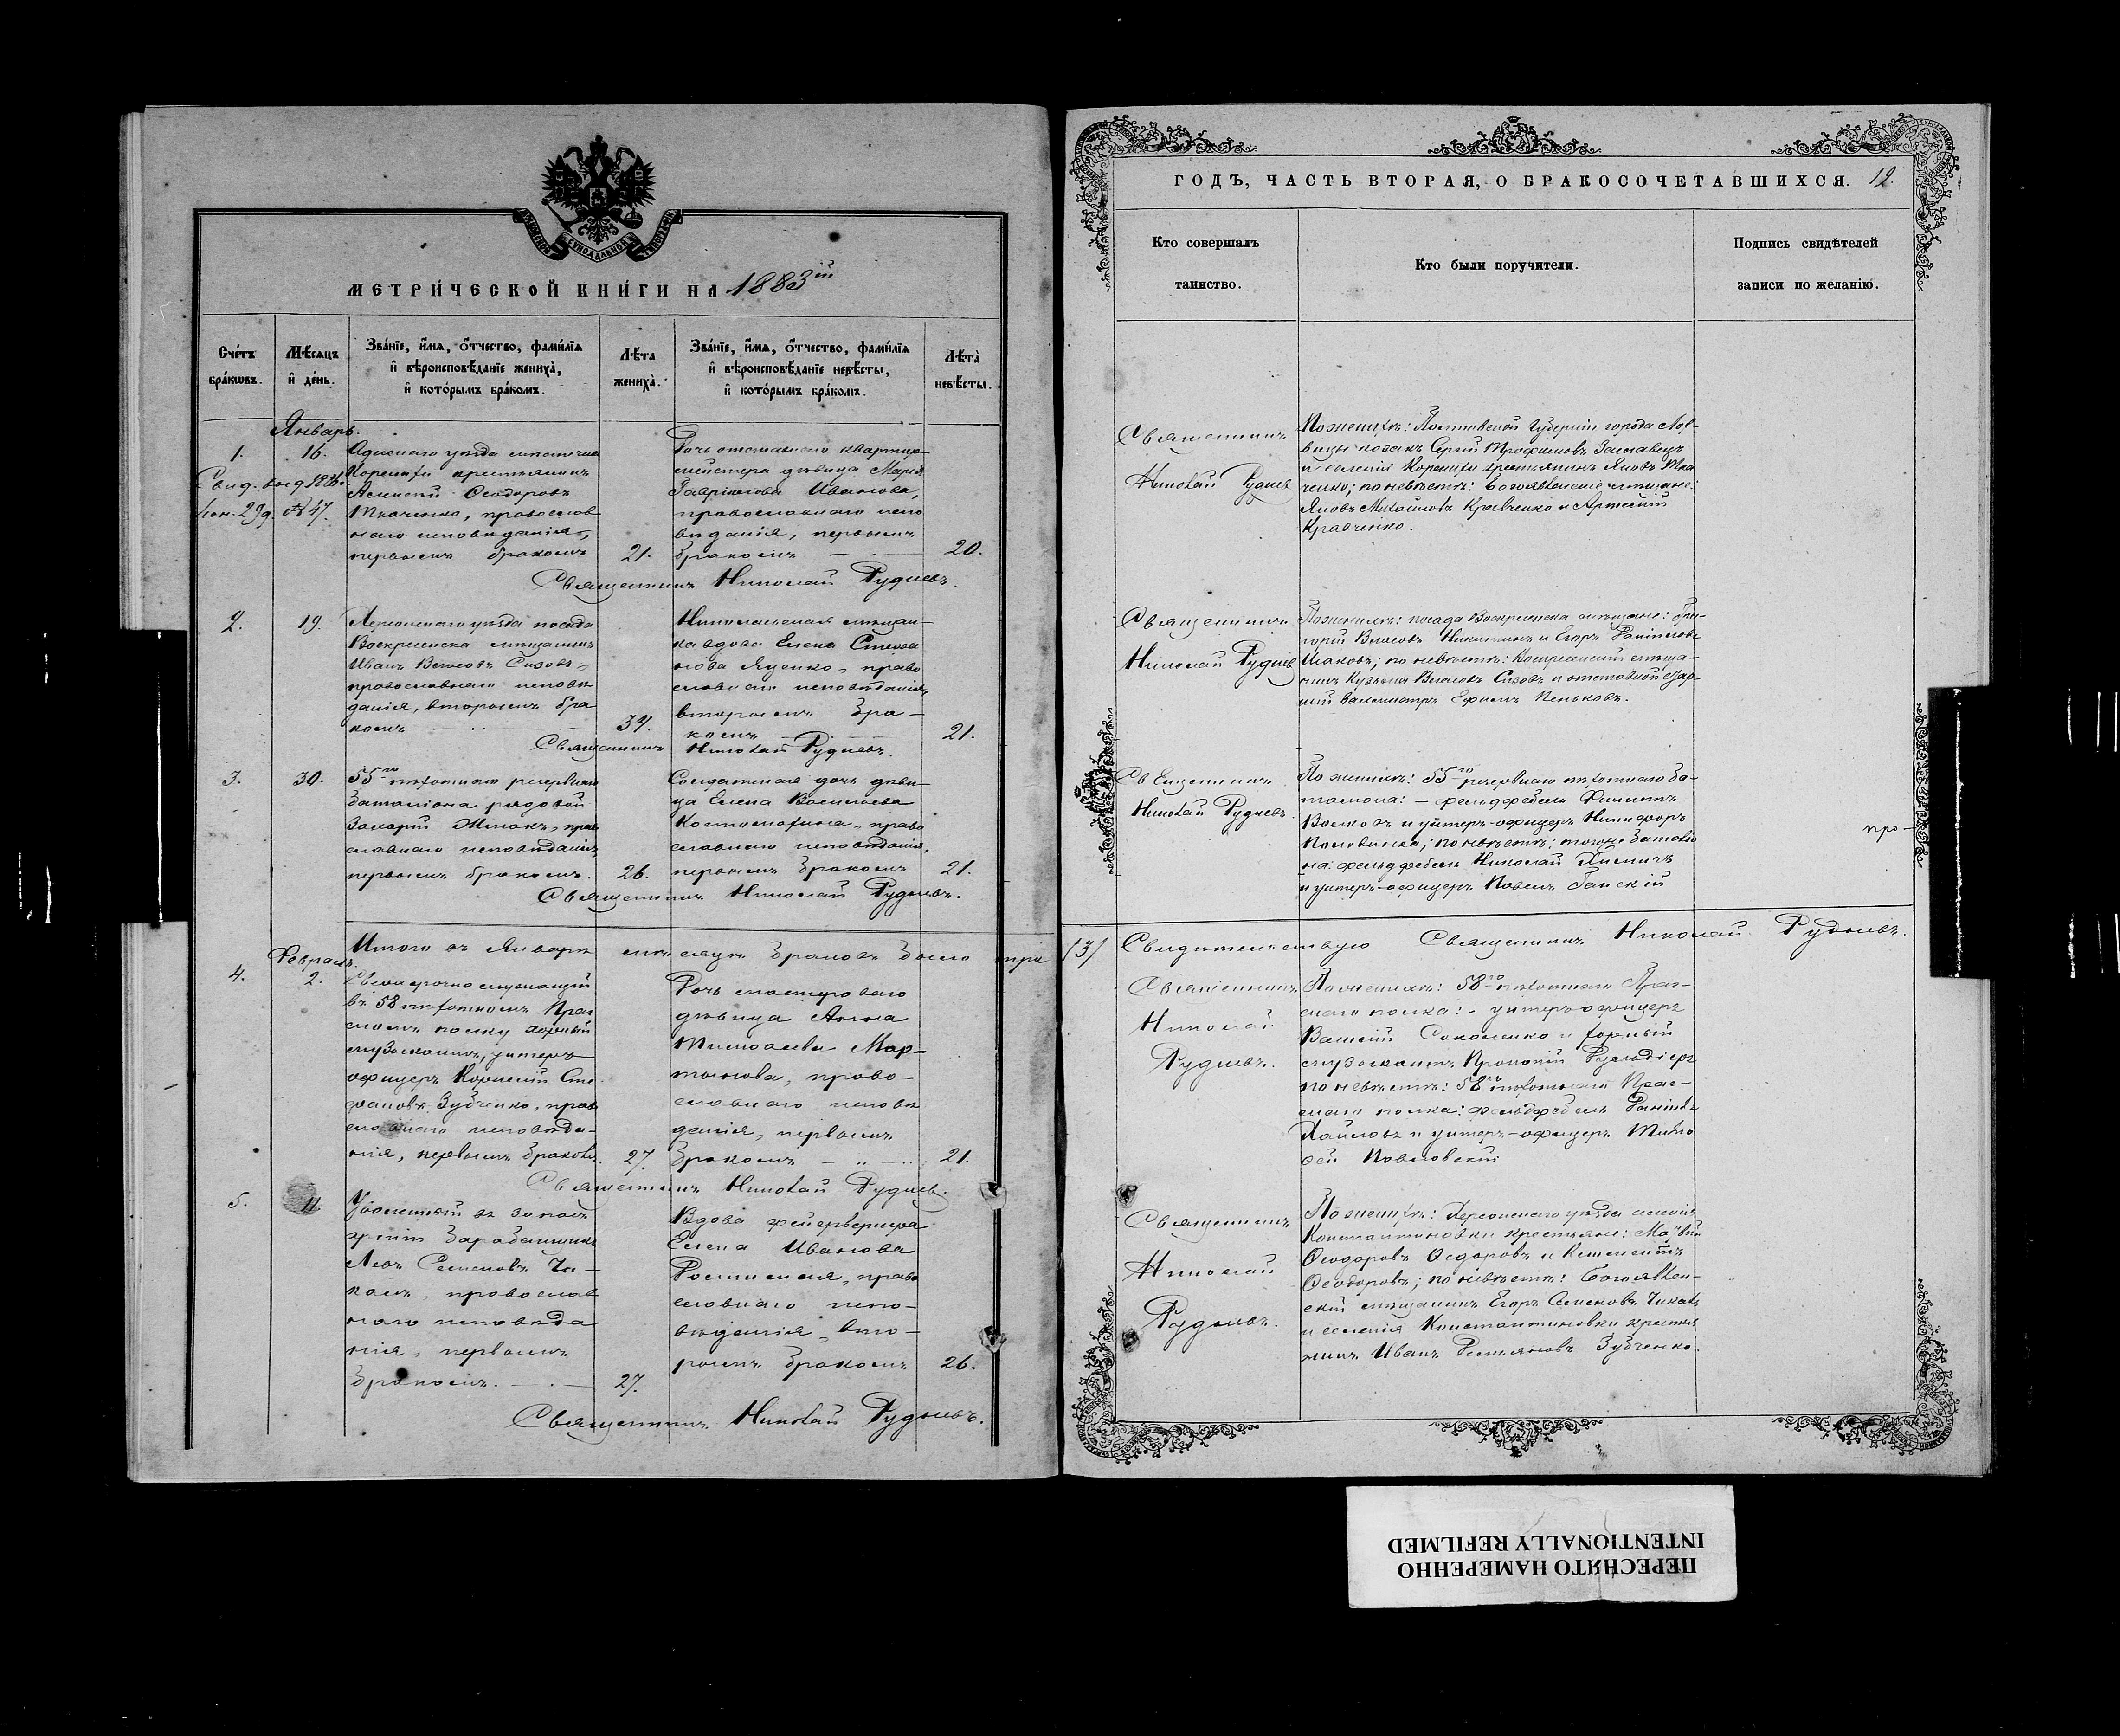 МОСКОВСКОЙ СУНОДАЛЬНОЙ ТИПОГРАФІИ
МЕТРИ́ЧЕСКОЙ КНИ́ГИ НА 1883 ій
Сче́тъ бра́кѡвъ.
Мѣ́сяцъ и҆ де́нь.
Зва́нїе, и҆́мя, о҆́тчество, фами́лїя и҆ вѣроисповѣ́данїе жениха̀, и҆ кото́рымъ бра́комъ.
Лѣ́та жениха̀.
Зва́нїе, и҆́мя, о҆́тчество, фами́лїя и҆ вѣроисповѣ́данїе невѣ́сты, и҆ кото́рымъ бра́комъ.
Лѣ́та невѣ́сты.
Январь.
1.
16.
Одесскаго уѣзда мѣстечка
Коренихи крестьянинъ
Алексѣй Ѳеодоровъ
Ткаченко, православ
наго исповѣданія,
первымъ бракомъ
21.
Дочь отставнаго квартир-
мейстера дѣвица Марія
Гавріилова Иванова,
православнаго испо
вѣданія, первымъ
бракомъ
20.
№ 47.
Священникъ Николай Рудневъ.
2.
19.
Херсонскаго уѣзда посада
Воскресенска мѣщанинъ
Иванъ Власовъ Сизовъ,
православнаго исповѣ
данія, вторымъ бра
комъ
34.
Николаевская мѣщан-
ка вдова Елена Степа
нова Яценко, право
славнаго исповѣданія,
вторымъ бра-
комъ
21.
Священникъ Николай Рудневъ.
3.
30.
55го пѣхотнаго резервнаго
баталіона рядовой
Захарій Жмакъ, прав
славнаго исповѣданія,
первымъ бракомъ.
26.
Солдатская дочь дѣви-
ца Елена Васильева
право
славнаго исповѣданія,
первымъ бракомъ
21.
Священникъ Николай Рудневъ.
Итого въ Январѣ мѣсяцѣ браковъ было три /3/ Свидѣтельствую Священникъ Николай Рудневъ.
Февраль.
4.
2.
Сверхсрочно служащій
въ 58 пѣхотномъ Праг
скомъ полку хорный
музыкантъ, унтеръ
офицеръ Корнилій Сте
фановъ Зубченко, прав
славнаго исповѣда-
нія, первымъ бракомъ.
27.
Дочь мастероваго
дѣвица Анна
Тимоѳеева Мар-
тынова, право-
славнаго исповѣ
данія, первымъ
бракомъ
21.
Священникъ Николай Рудневъ.
5.
11.
Уволенный въ запасъ
арміи барабанщикъ
Левъ Семеновъ Чи-
калъ, православ
наго исповѣда
нія, первымъ
бракомъ.
27.
Вдова фейерверкера
Елена Иванова
право
славнаго испо-
вѣданія, вто-
рымъ бракомъ
26.
Священникъ Николай Рудневъ.
ГОДЪ, ЧАСТЬ ВТОРАЯ, О БРАКОСОЧЕТАВШИХСЯ. 12.
Кто совершалъ таинство.
Кто были поручители.
Подпись свидѣтелей записи по желанію.
Священникъ
Николай Рудневъ
По женихѣ: Полтавской Губерніи города Лох-
вицы козакъ Сергій Трофимовъ Заславецъ
и селенія Коренихи крестьянинъ Яковъ Тка
ченко; по невѣстѣ: Богоявленскіе мѣщане:
Яковъ Михайловъ Кравченко и Артемій
Кравченко.
Священникъ
Николай Рудневъ
По женихѣ: посада Воскресенска мѣщане: Гри-
горій Власовъ Никитинъ и Егоръ Даниловъ
Исаковъ; по невѣстѣ: Воскресенскій мѣща-
нинъ Кузьма Власовъ Сизовъ и отставной
Ефимъ Пеньковъ.
Священникъ
Николай Рудневъ.
По женихѣ: 55го резервнаго пѣхотнаго ба-
таліона: фельдфебель Филиппъ
Волковъ и унтеръ-офицеръ Никифоръ
Половинка; по невѣстѣ: того же баталіо
на фельдфебель Николай
и унтеръ-офицеръ Павелъ Ганскій
про-
Священникъ
Николай
Рудневъ.
По женихѣ: 58го пѣхотнаго Праг-
скаго полка: унтеръ-офицеръ
Василій Соколенко и хорный
музыкантъ Прокопій
по невѣстѣ: 58го пѣхотнаго Праг-
скаго полка: фельдфебель Даніилъ
Хайловъ и унтеръ-офицеръ Тимо
ѳей Павловскій
Священникъ
Николай
Рудневъ.
По женихѣ: Херсонскаго уѣзда селенія
Константиновки крестьяне: Матвѣй
Ѳеодоровъ Ѳедоровъ и Климентъ
Ѳеодоровъ; по невѣстѣ: Богоявлен-
скій мѣщанинъ Егоръ Семеновъ Чикалъ
и селенія Константиновки крестья
нинъ Иванъ Зубченко.
ПЕРЕСНЯТО НАМЕРЕННО
INTENTIONALLY REFILMED